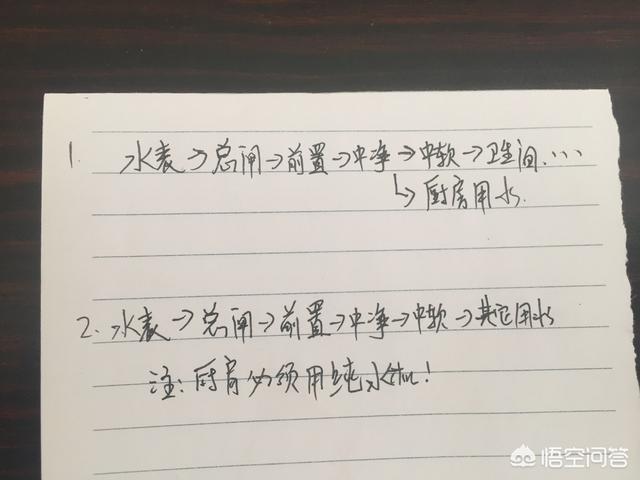 1. 水表→总闸→前置→中净→中软→卫生间....
↳厨房用水.
2. 水表→总闸→前置→中净→中软→其它用水
注:厨房必须用纯水机!
悟空问答